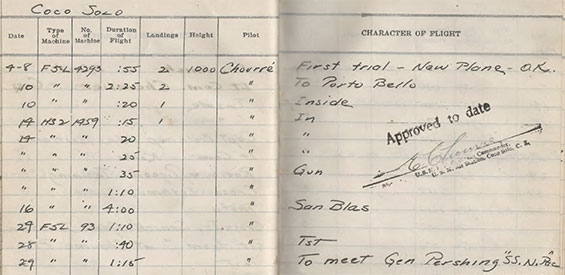 COCO SOLO
Date Type of Machine No. of Machine Duration of Flight Landings Height Pilot CHARACTER OF FLIGHT
4-8 F5L 4293 :55 2 1000 Chourré First trial - New Plane - O.K.
10 " " 2:25 2 " To Porto Bello
10 " " :20 1 " Inside
14 HS2 1459 :15 1 " In
14 " " 20 " "
" " " 25 " "
" " " 35 " Gun
" " 1:10 "
16 " " 4:00 " San Blas
29 F5L 93 1:10 "
28 " " :40 " Tst
29 " " 1:15 " To meet Gen Pershing "SS. N.
Approved to date
Commander,
U. S. N. Air Station, Coco Solo, C. Z.